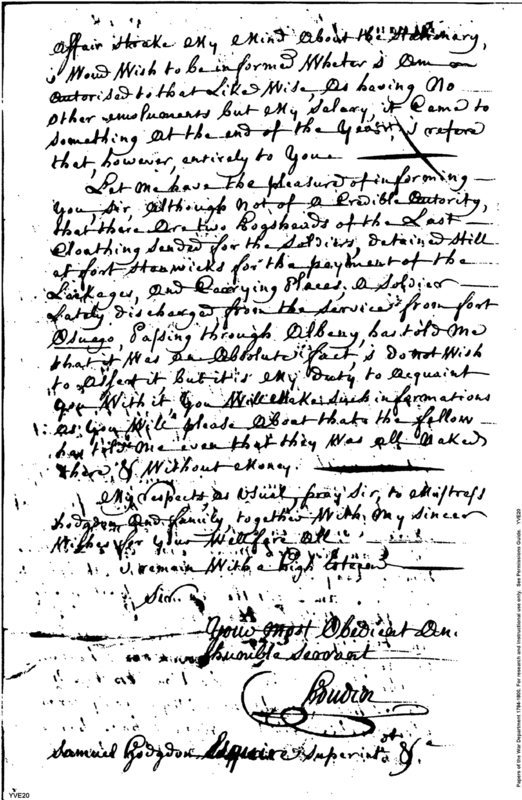 affair strake My Mind About the Stationary,
i Woud Wish to be informed Wheter i Am
autorised to that Like Wise, As having No
other emoluments but My Salary, it Came to
something At the end of the Year, i refere
that, however, entirely to You
Let Me have the pleasure of informing
You, Sir, Although Not of A Credible Autority,
that there Are two hogsheads of the Last
Cloathing sended for the Soldiers, detained Still
at fort Stanwicks for the payment of the
Lockages, And Carrying Places; A Soldier
Lately discharged from the Service, from fort
Oswego, Passing through Albany, has told Me
that it Was an Absolute fact, i do not Wish
to Assert it but it is My Duty to Acquaint
You With it, You Will Make Such informations
As You Will please About that. the fellow
has told Me even that they Was All Naked
there, & Without Money.
My respects, as usual, pray Sir, to Mistress
hodgdon And family, together With My Sincer
Wishes for Your Wellfare All
i remain With a high Esteem
Sir
Your Most Obedient An.
Humble Servant
Boudin
Samuel Hodgdon Esquire Superintdt. &c.
YVE20
Papers of the War Department 1784-1800. For research and instructional use only. See Permissions Guide. YVE20